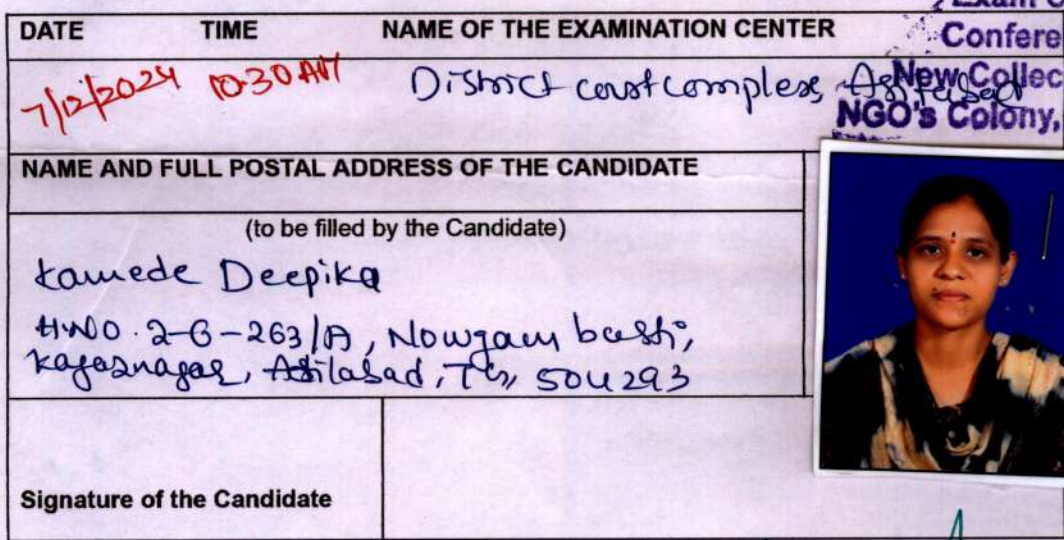 Exam C
DATE TIME NAME OF THE EXAMINATION CENTER
Confere
7/12/2024 10-30 AM District court complex,
New Collec
NGO's Colony,
NAME AND FULL POSTAL ADDRESS OF THE CANDIDATE
(to be filled by the Candidate)
Kamede Deepika
H.NO. 2-6-263/A, Nowgam basti,
Kagaznagar, Asifabad, TG, 504293
Signature of the Candidate